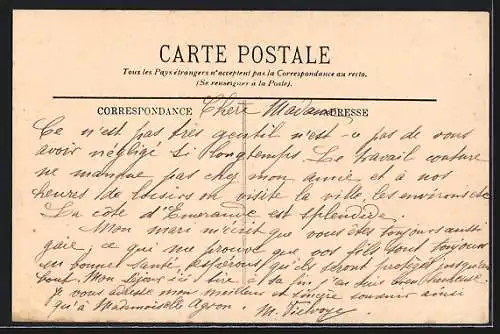 CARTE POSTALE
Tous les Pays étrangers n'acceptent pas la Correspondance au recto.
(Se renseigner à la Poste).
CORRESPONDANCE Chère Madame ADRESSE
Ce n'est pas très gentil n'est-ce pas de vous
avoir négligé si longtemps. Le travail couture
ne manque pas chez mon amie et à nos
heures de loisirs on visite la ville, les environs etc
La côte d'Emeraude est splendide.
Mon mari m'écrit que vous êtes toujours aussi
gaie, ce que me prouve que vos fils sont toujours
en bonne santé, espérons qu'ils seront protégés jusqu'au
bout. Mon séjour ici tire à sa fin j'en suis bien
Je vous adresse mon meilleur et sincère souvenir ainsi
qu'à Mademoiselle Agron.